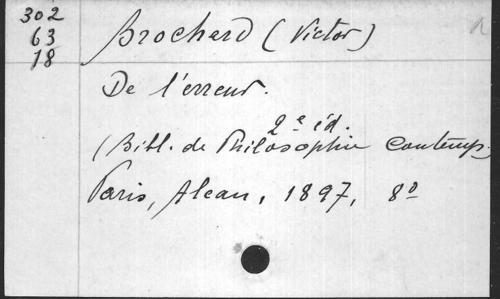 302
63
18
Brochard (Victor)
De l'erreur.
2e éd.
(Bibl. de Philosophie Contemp.)
Paris, Alcan, 1897, 8º